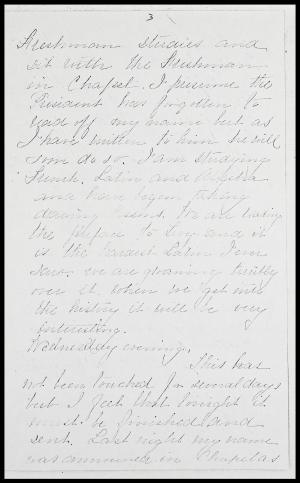 3
Freshman studies and
sit with the Freshman
in Chapel. I presume the
President has forgotten to
read off my name but as
I have written to him he will
soon do so. I am studying
French, Latin and Algebra
and have begun taking
drawing lessons. We are taking
the preface to Livy and it
is the hardest Latin I ever
saw. We are groaning terribly
over it. When we get into
the history it will be very
interesting.
Wednesday evening.
This has
not been touched for several days
but I feel that tonight it
must be finished and
sent. Last night my name
was announced in Chapel as